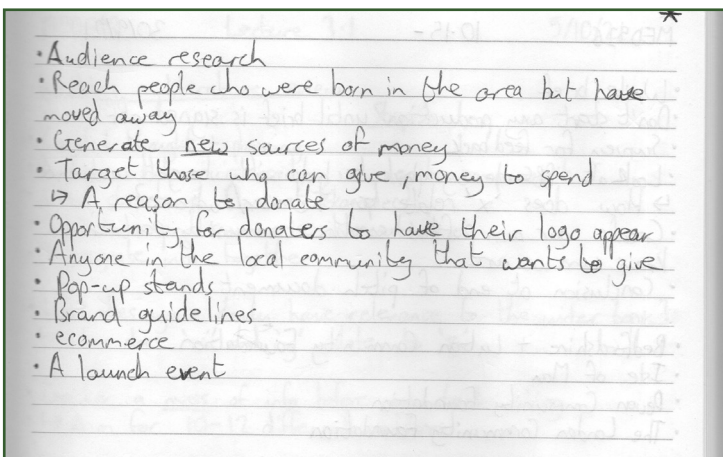 · Audience research
· Reach people who were born in the area but have
moved away
· Generate new sources of money
· Target those who can give, money to spend
↳ A reason to donate
· Opportunity for donaters to have their logo appear
· Anyone in the local community that wants to give
· Pop-up stands
· Brand guidelines
· ecommerce
· A launch event